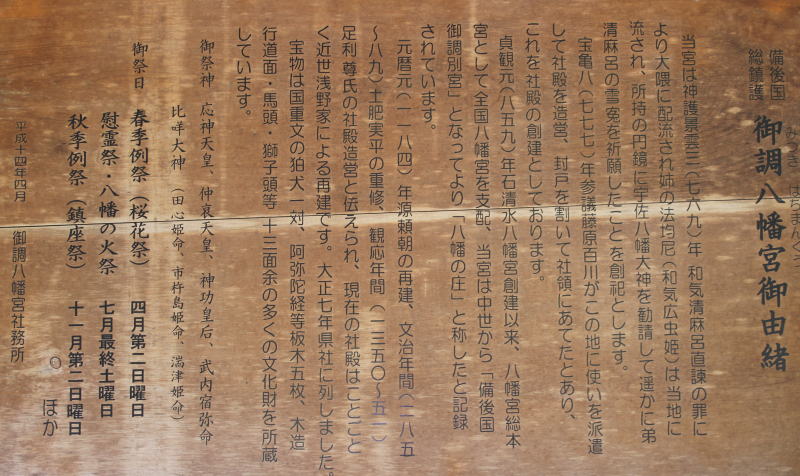 備後国
総鎮護
御調八幡宮御由緒
みつき はちまんぐう
当宮は神護景雲三(七六九)年 和気清麻呂直諫の罪に
より大隈に配流され姉の法均尼(和気広虫姫)は当地に
流され、所持の円鏡に宇佐八幡大神を勧請して遥かに弟
清麻呂の雪冤を祈願したことを創祀とします。
宝亀八(七七七)年参議藤原百川がこの地に使いを派遣
して社殿を造営、封戸を割いて社領にあてたとあり、
これを社殿の創建としております。
貞観元(八五九)年石清水八幡宮創建以来、八幡宮総本
宮として全国八幡宮を支配、当宮は中世から「備後国
御調別宮」となってより「八幡の庄」と称したと記録
されています。
元暦元(一一八四)年源頼朝の再建、文治年間(一一八五
〜八九)土肥実平の重修、観応年間(一三五〇〜五一)
足利尊氏の社殿造営と伝えられ、現在の社殿はことごと
く近世浅野家による再建です。大正七年県社に列しました。
宝物は国重文の狛犬一対、阿弥陀経等板木五枚、木造
行道面・馬頭・獅子頭等 十三面余の多くの文化財を所蔵
しています。
御祭神 応神天皇、仲哀天皇、神功皇后、武内宿弥命
比咩大神(田心姫命、市杵島姫命、湍津姫命)
御祭日 春季例祭(桜花祭) 四月第二日曜日
慰霊祭・八幡の火祭 七月最終土曜日
秋季例祭(鎮座祭) 十一月第二日曜日
○ ほか
平成十四年四月 御調八幡宮社務所